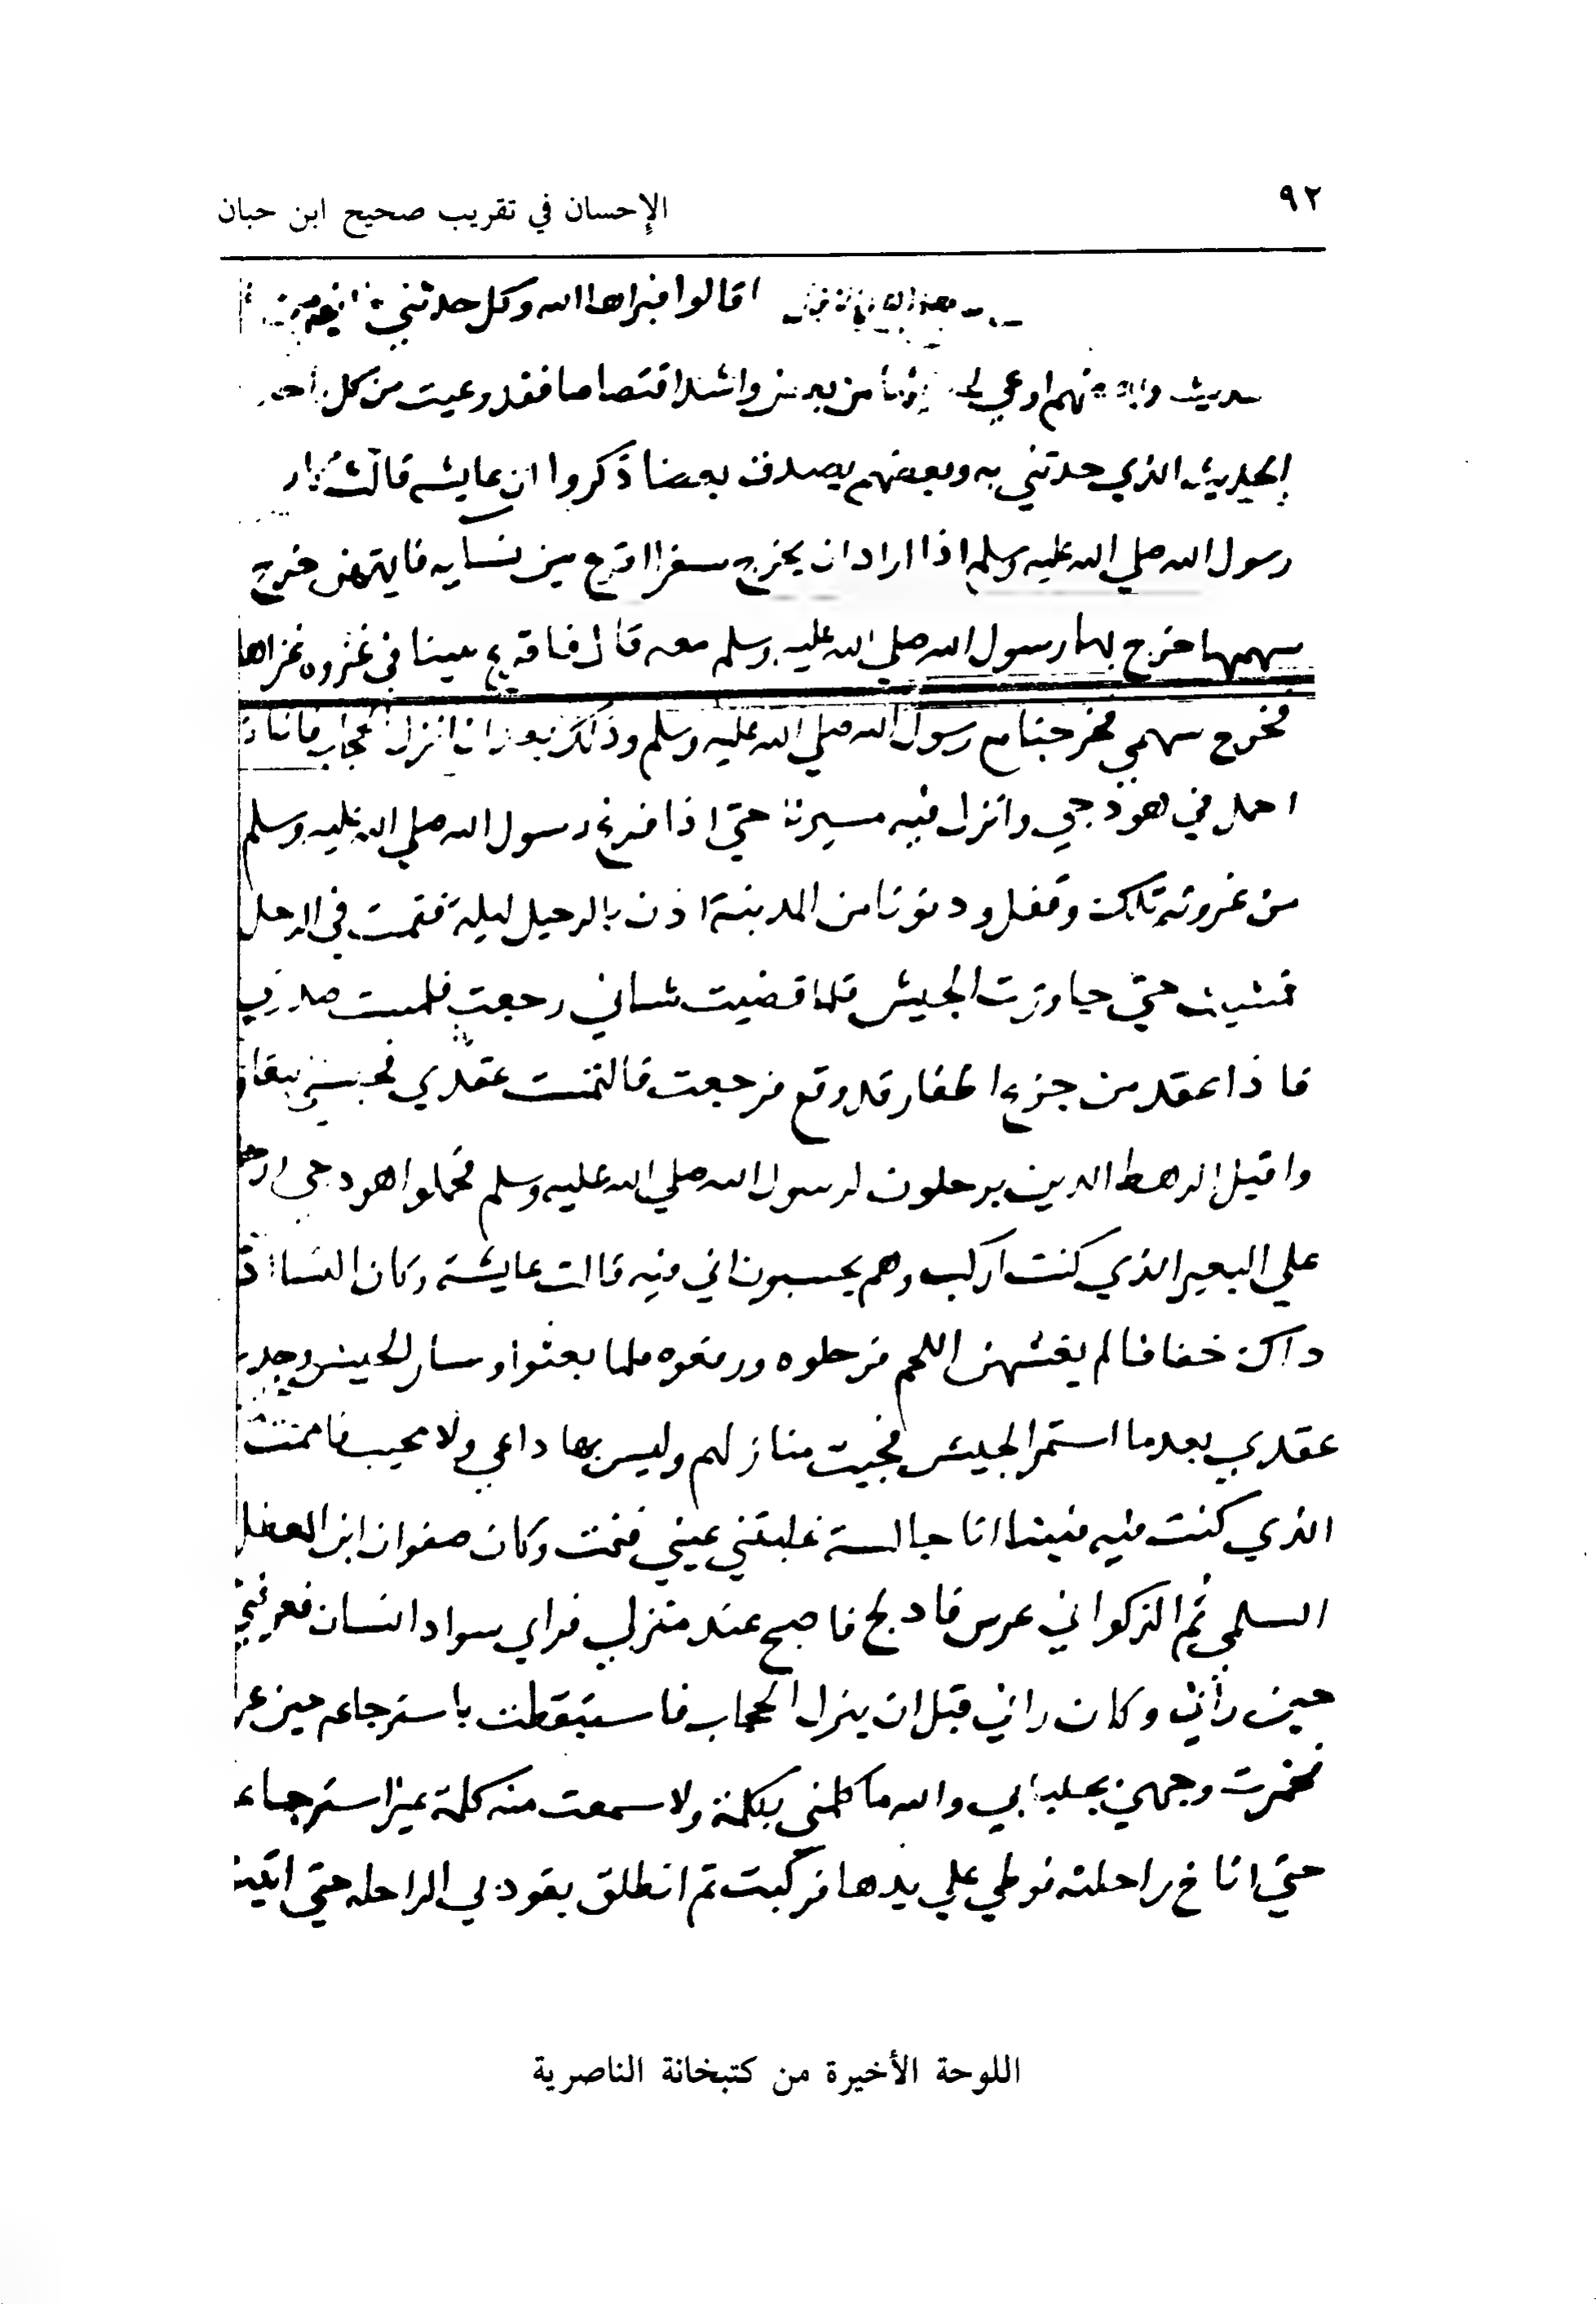 ٩٢
الإحسان في تقريب صحيح ابن حبان
قالوا فبراها الله وكل حدثني
اوعي من بعض واشد اقتصاصا فقد وعيت من كل
الحديث الذي حدثني به وبعضهم يصدق بعضا ذكروا ان عايشه قالت
رسول الله صلي الله عليه وسلم اذا اراد ان يخرج سفرا اقرع بين نسايه فايتهن خرج
سهمها خرج بها رسول الله صلي الله عليه وسلم معه قال فاقرع بيننا في غزوه غزاها
فخرج سهمي فخرجنا مع رسول الله صلي الله عليه وسلم وذلك بعد ان انزل الحجاب فانا
احمل في هودجي وانزل فيه مسيرنا حتي اذا فرغ رسول الله صلي الله عليه وسلم
من غزوته تلك وقفل ودنونا من المدينة اذن بالرحيل ليلة فقمت في الرحل
فمشيت حتي جاوزت الجيش فلما قضيت شاني رجعت فلمست صدري
فاذا عقد من جزع اظفار قد وقع فرجعت فالتمست عقدي فحبسني
واقبل الرهط الذين يرحلون لرسول الله صلي الله عليه وسلم فحملوا هودجي
علي البعير الذي كنت اركب وهم يحسبون اني فيه قالت عايشة وكان النساا
ذاك خفافا لم يغشهن اللحم فرحلوه ورفعوه فلما بعثوا وسار الجيش وجدت
عقدي بعد ما استمر الجيش فجيت منازلهم وليس بها داعي ولا مجيب
الذي كنت فيه فبينما انا جالسة غلبتني عيني فنمت وكان صفوان ابن المعطل
السلمي ثم الذكواني عرس فادلج فاصبح عند منزلي فراي سواد انسان فعرفني
حين رآني وكان راني قبل ان ينزل الحجاب فاستيقظت باسترجاعه حين
فخمرت وجهي بجلبابي والله ما كلمني بكلمة ولا سمعت منه كلمة غير استرجاعه
حتي اناخ راحلته فوطي علي يدها فركبت ثم انطلق يقود بي الراحله حتي اتينا
اللوحة الأخيرة من كتبخانة الناصرية